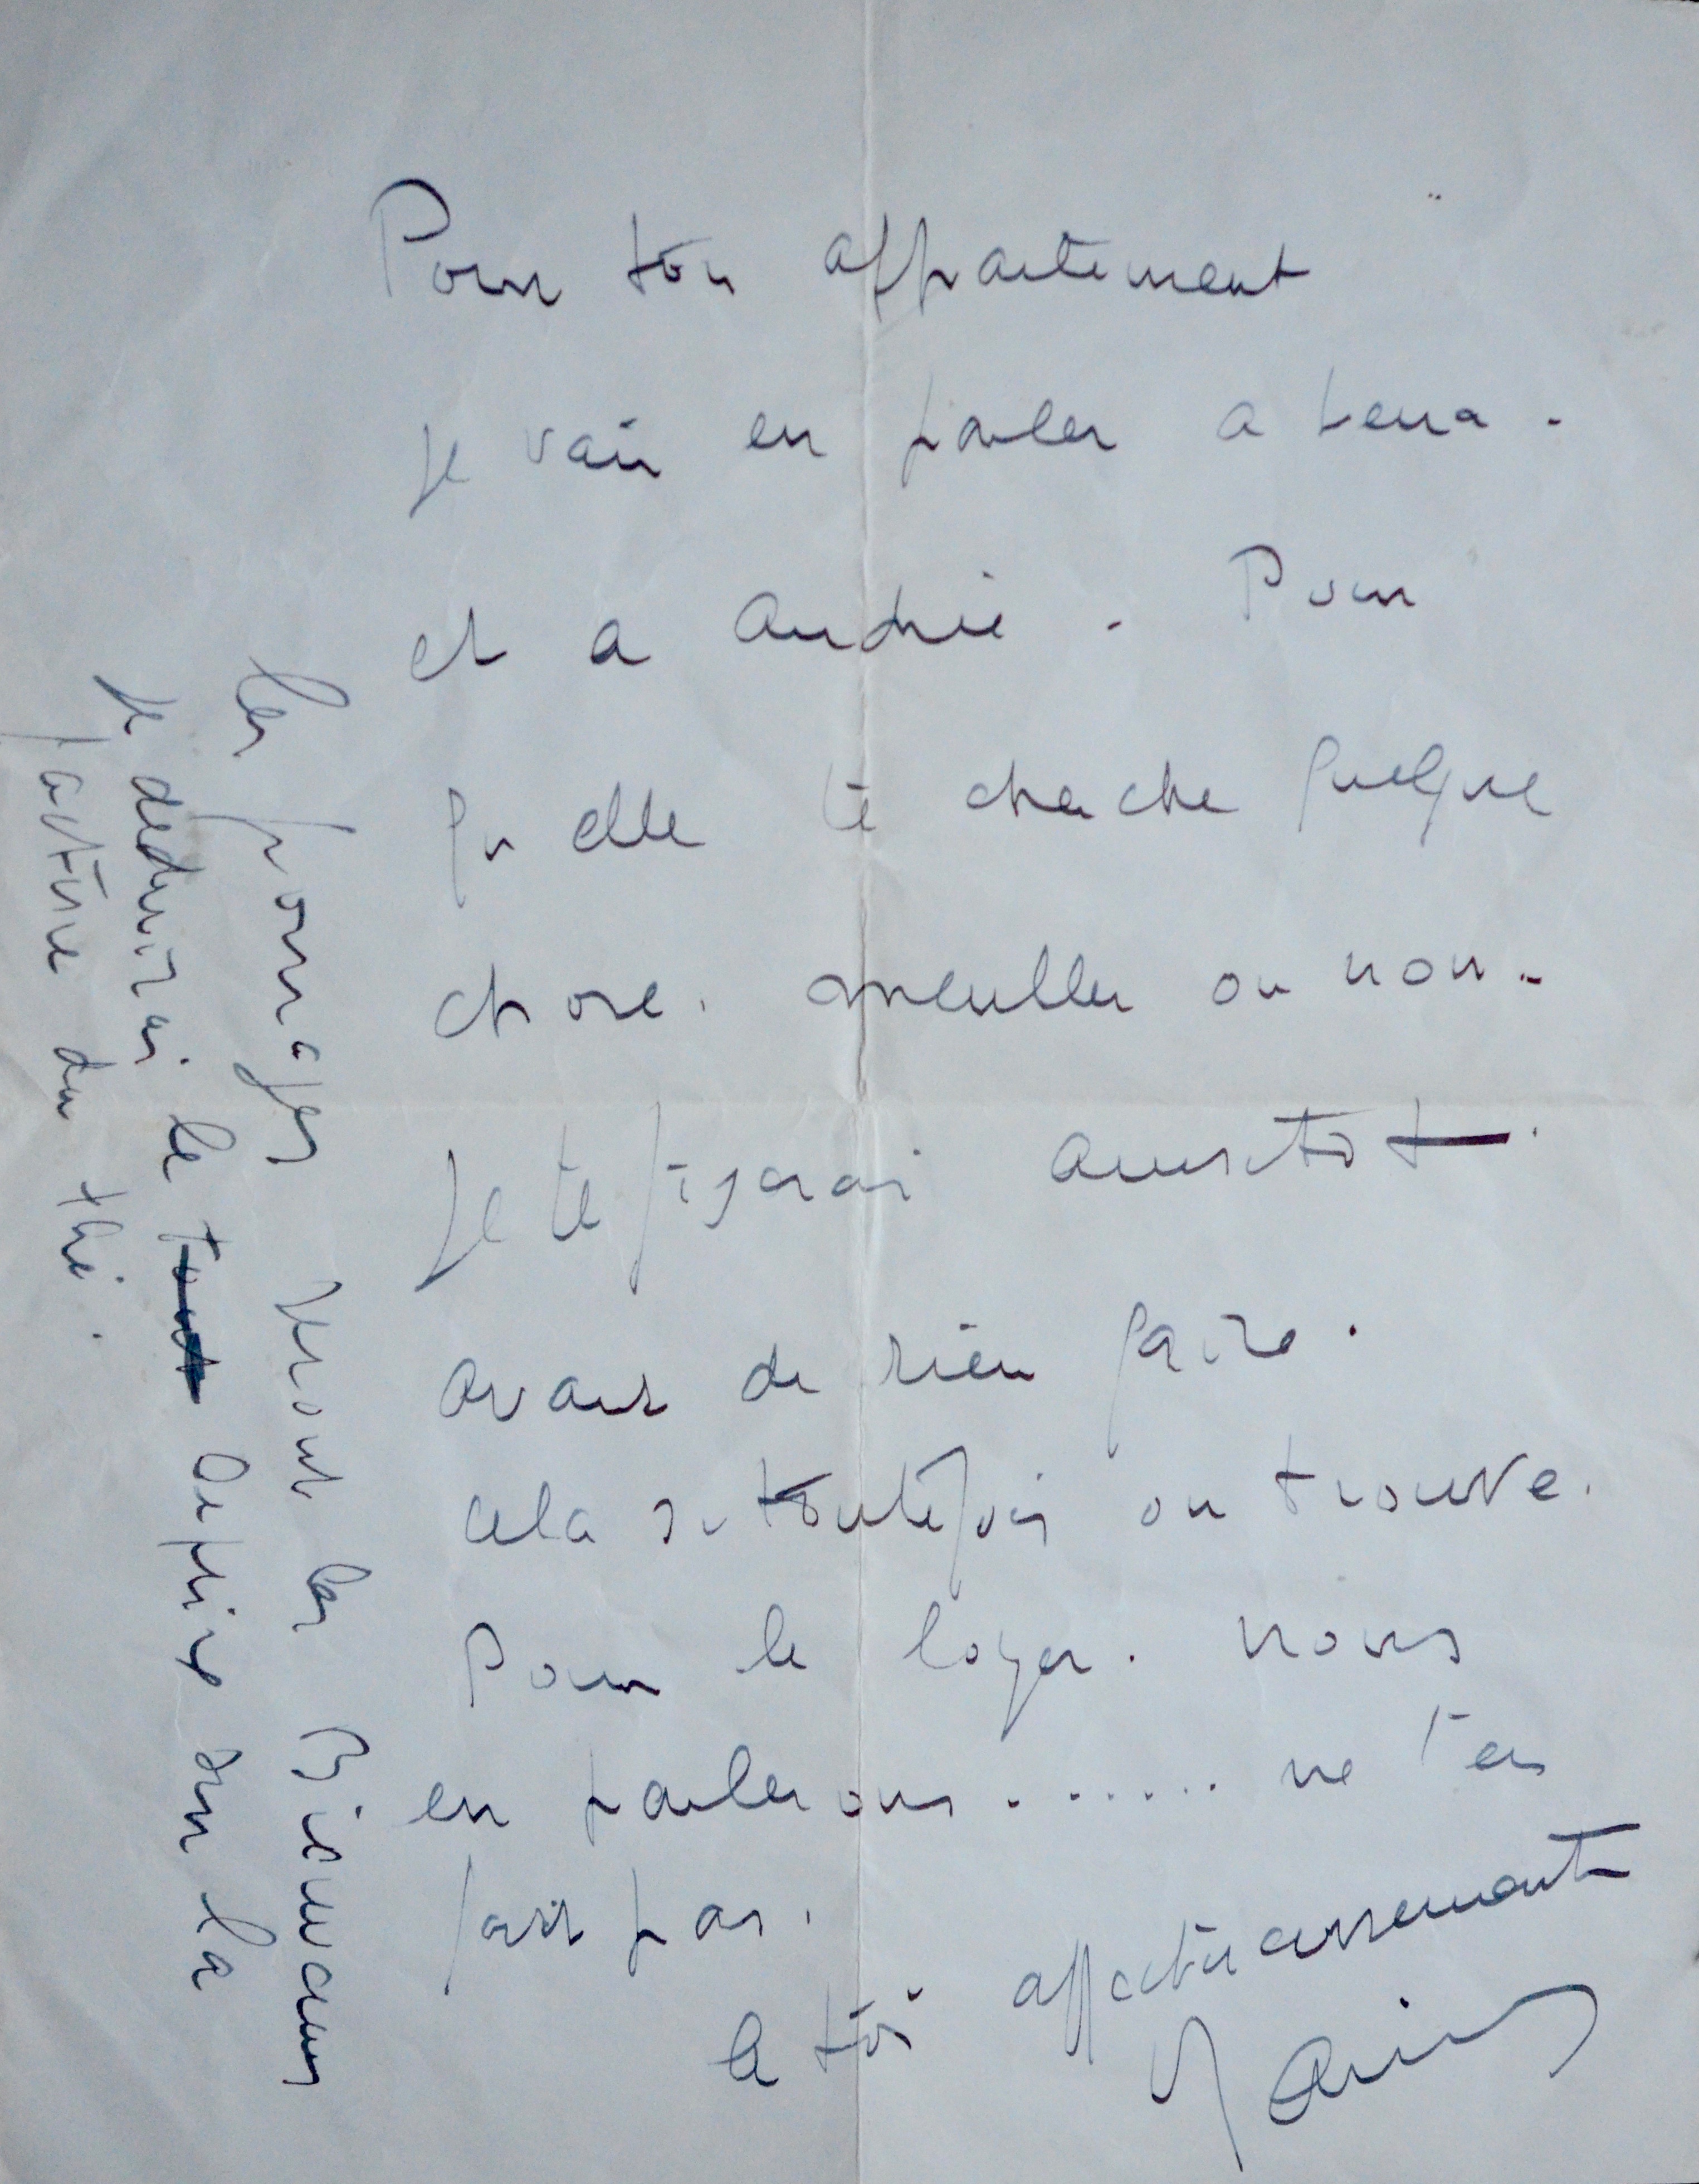 Pour ton appartement
je vais en parler a Lena.
et a Andrée. Pour
qu elle te cherche quelque
chose. meubler ou non.
Je te fixerai aussitot.
avant de rien faire.
cela si toutefois on trouve.
Pour le loyer. nous
en parlerons....... ne t'en
fait pas.
a toi affectueusement
les fromages seront les Bienvenus
je deduirai le tout depuis sur la
facture du thé.